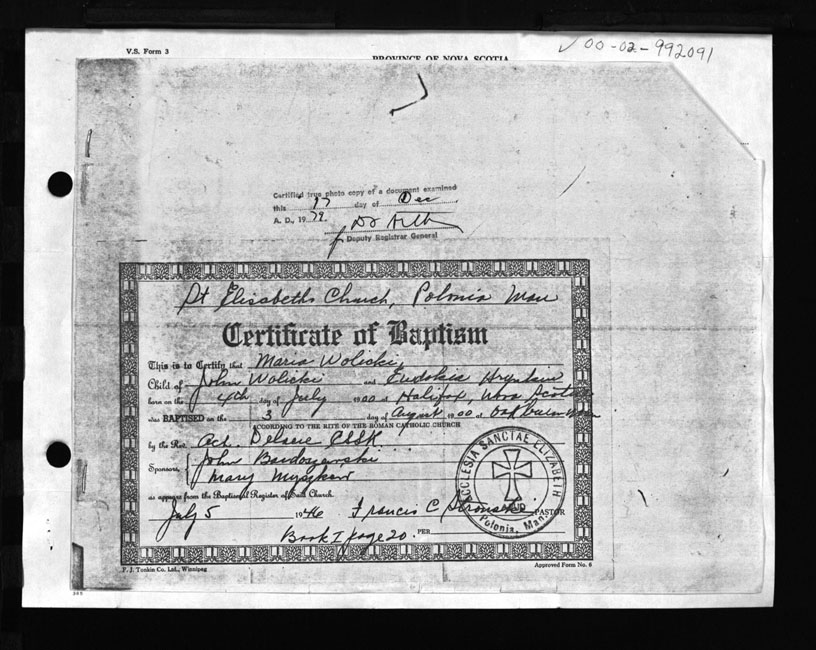 V.S. Form 3
✓ 00-02-992091
PROVINCE OF NOVA SCOTIA
Certified true photo copy of a document examined
this 17 day of Dec
A. D., 19 79.
Deputy Registrar General
St Elisabeths Church, Polonia Man
Certificate of Baptism
This is to Certify that Maria Wolicki
Child of John Wolicki and Eudokia Hrynkiw
born on the 4th day of July 1900 at Halifax, Nova Scotia
was BAPTISED on the 3 day of August 1900 at Oak
ACCORDING TO THE RITE OF THE ROMAN CATHOLIC CHURCH
by the Rev. Ach. Delaere CSSR
Sponsors John
Mary
as appears from the Baptismal Register of Said Church.
July 5 1946 Francis C PASTOR
Book I page 20. PER
ECCLESIA SANCTAE ELIZABETH
Polonia, Man.
P. J. Tonkin Co. Ltd., Winnipeg
Approved Form No. 6